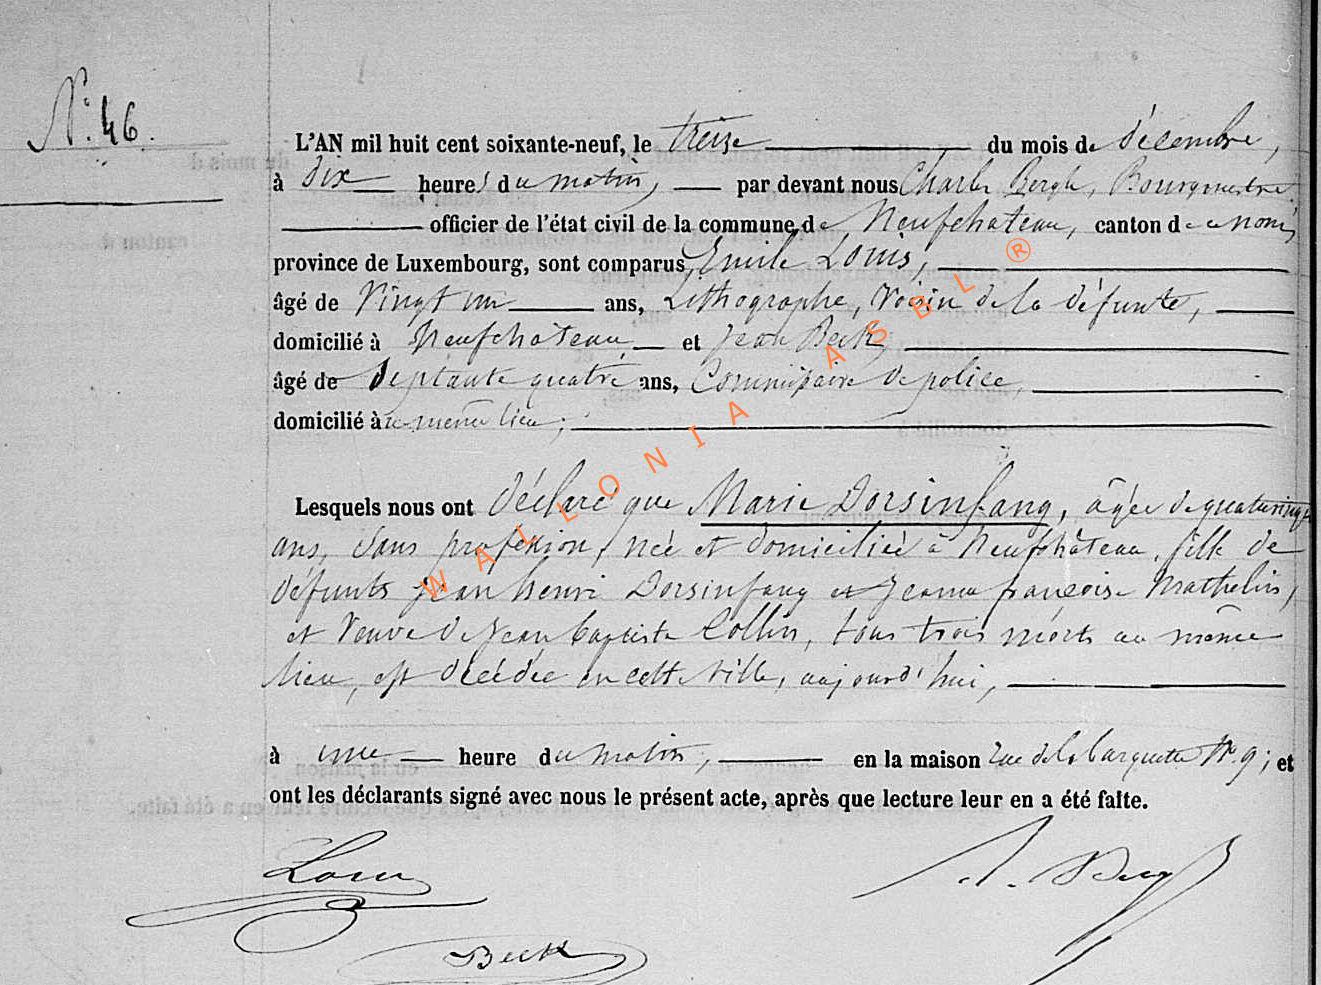 N° 46.
L'AN mil huit cent soixante-neuf, le treize du mois de décembre,
à dix heures du matin, par devant nous Charles Bergh, Bourgmestre
officier de l'état civil de la commune de Neufchateau, canton de ce nom,
province de Luxembourg, sont comparus Emile Louis,
âgé de Vingt un ans, Lithographe, Voisin de la défunte,
domicilié à Neufchateau et Jean Beck,
âgé de Septante quatre ans, Commissaire de police,
domicilié au même lieu;
Lesquels nous ont déclaré que Marie Dorsinfang, âgée de quatrevingt
ans, sans profession, née et domiciliée à Neufchâteau, fille de
défunts Jean henri Dorsinfang et Jeanne françoise Mathelin,
et Veuve de Jean baptiste Collin, tous trois morts au même
lieu, est décédée en cette ville, aujourd'hui,
à une heure du matin, en la maison rue de la barquette N° 9; et
ont les déclarants signé avec nous le présent acte, après que lecture leur en a été faite.
Louis
Beck
WALLONIA ASBL ®